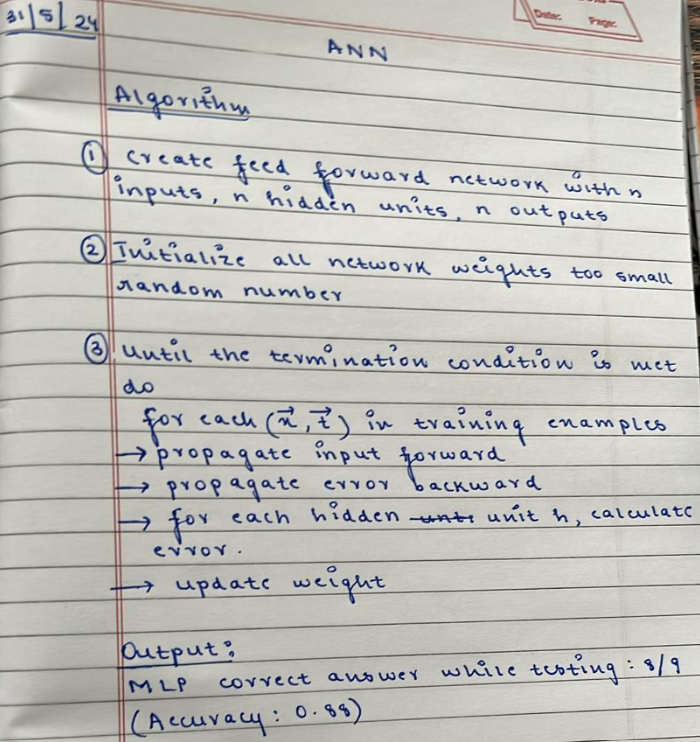 31/5/24
Date: Page:
ANN
Algorithm
① Create feed forward network with n
inputs, n hidden units, n outputs
② Initialize all network weights too small
random number
③ Until the termination condition is met
do
for each (x⃗, t⃗) in training examples
→ propagate input forward
→ propagate error backward
→ for each hidden unit h, calculate
error.
→ update weight
Output:
MLP correct answer while testing: 8/9
(Accuracy: 0.88)